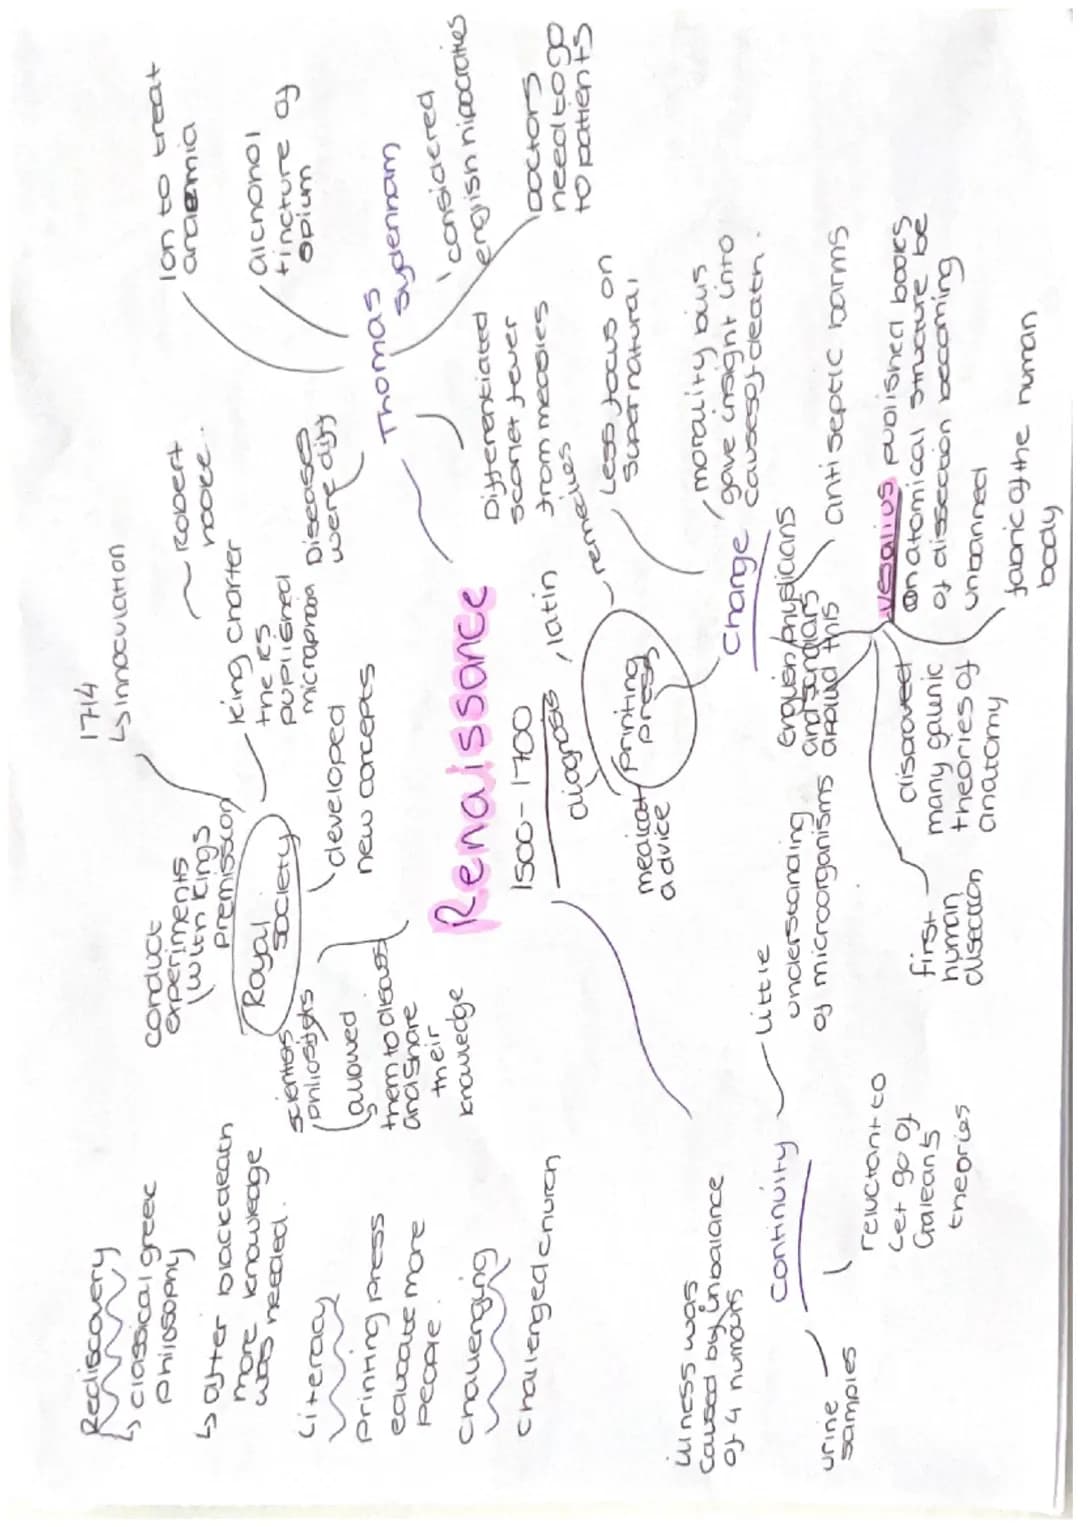 Rediscovery
↳ classical greek
philosophy
↳ after black death
more knowledge
was needed.
Literacy
printing press
educate more
people
Challenging
challenged church
conduct
experiments
with kings
premission
Royal
society
1714
↳ innoculation
robert
hooke..
king charter
the RS
puplished
developed
new concepts
scientists
allowed
them to discuss
and share
their
knowledge
Renaissance
1500 - 1700
Thomas
sydenham
Ion to treat
anaemia
alchohol
tincture of
opium
considered
english hipocrates
Doctors
need to go
to patients
Diseases
were diff
Differentiated
scarlet fever
from measles
Printing
press
diagnosis
latin
remedies
medical
advice
Change
Less focus on
supernatural
morality bills
gave insight into
causes of death.
english physicians
and surgians
antiseptic barms
Vesalius published books
on anatomical structure be
of dissection becoming
unbanned
fabric of the human
body
many galenic
theories of
anatomy
first
human
disection
Continuity
Little
understanding
of microorganisms
reluctant to
let go of
Galeans
theories
urine
samples
illness was
caused by inbalance
of 4 humours